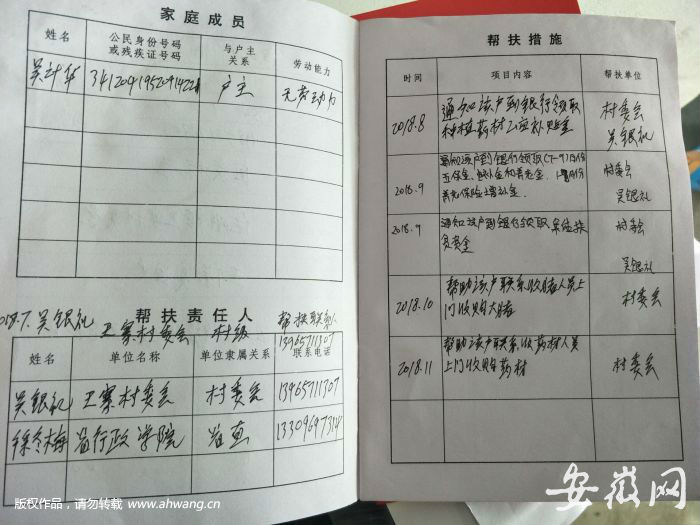 家庭成员
姓名 公民身份号码或残疾证号码 与户主关系 劳动能力
户主 无劳动力
2018.7. 吴银礼 王寨村委会 村级 帮扶联系人
13965711307
帮扶责任人
姓名 单位名称 单位隶属关系 联系电话
吴银礼 王寨村委会 村委会 13965711307
省行政学院 省直
帮扶措施
时间 项目内容 帮扶单位
2018.8 通知该户到银行领取 村委会
种植药材 补贴金 吴银礼
2018.9 通知该户到银行领取(7-9)月份 村委会
五保金
吴银礼
2018.9 通知该户到银行领取 村委会
资金
吴银礼
2018.10 帮助该户联系收猪人员上 村委会
门收购大猪
2018.11 帮助该户联系收药材人员 村委会
上门收购药材
版权作品，请勿转载 www.ahwang.cn
安徽网